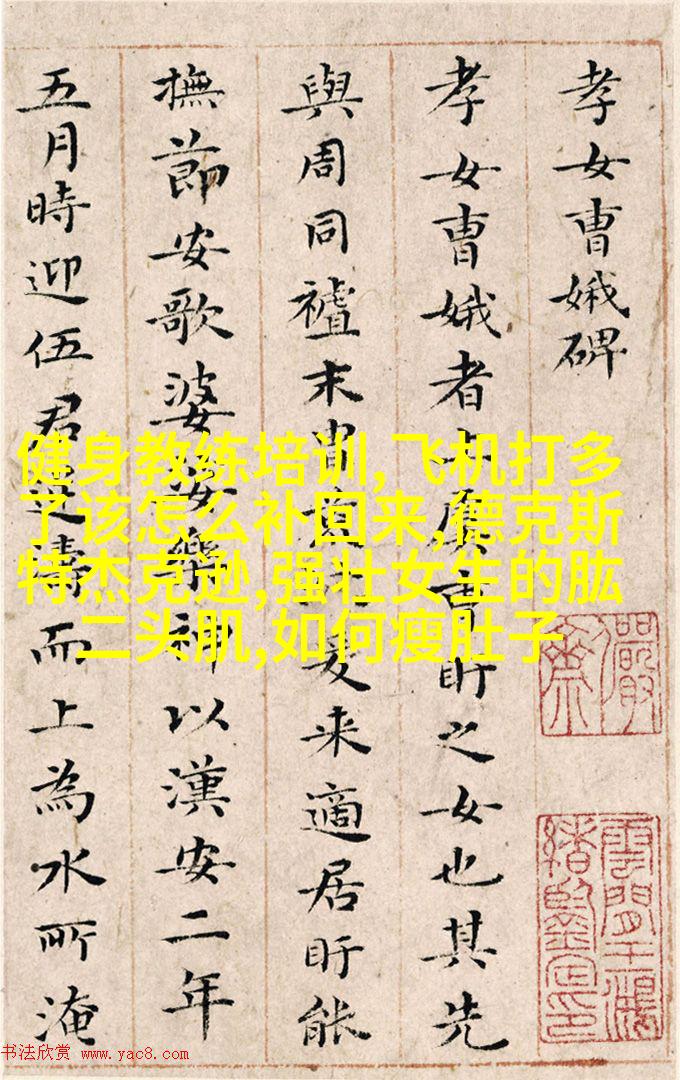 孝女曹娥碑
孝女曹娥者上虞曹盱之女也其先
與周同末胄爰来適居盱能
撫節安歌婆娑樂神以漢安二年
五月時迎伍君逆濤而上為水所淹
健身教练培训,飞机打多
了该怎么补回来,德克斯
特杰克逊,强壮女生的肱
二头肌,如何瘦肚子
雲間王鴻
緒鑒定印
书法欣赏 www.yac8.com